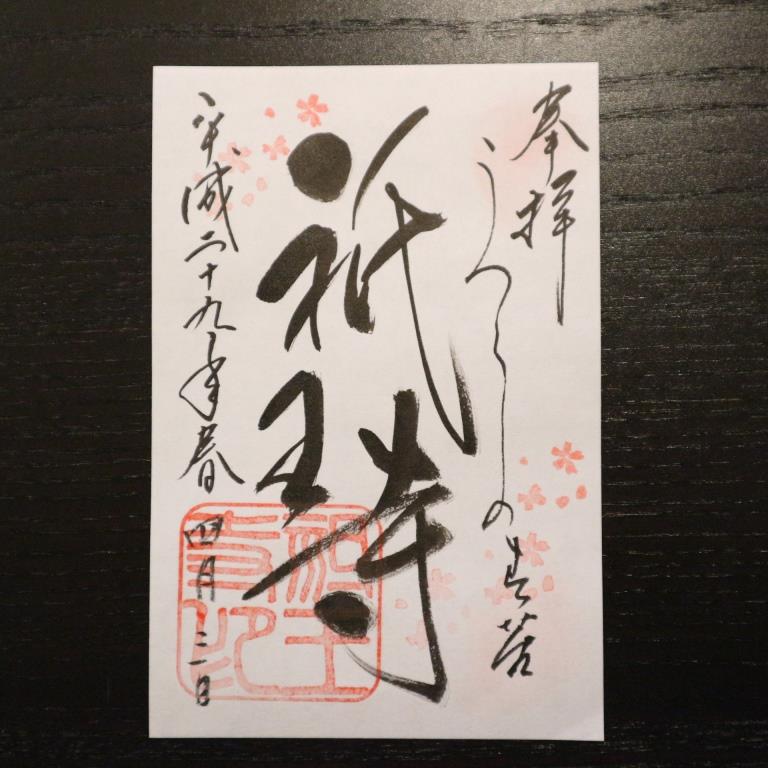 奉拝
うつくしの青苔
祇王寺
平成二十九年春 四月 日
祇王寺印